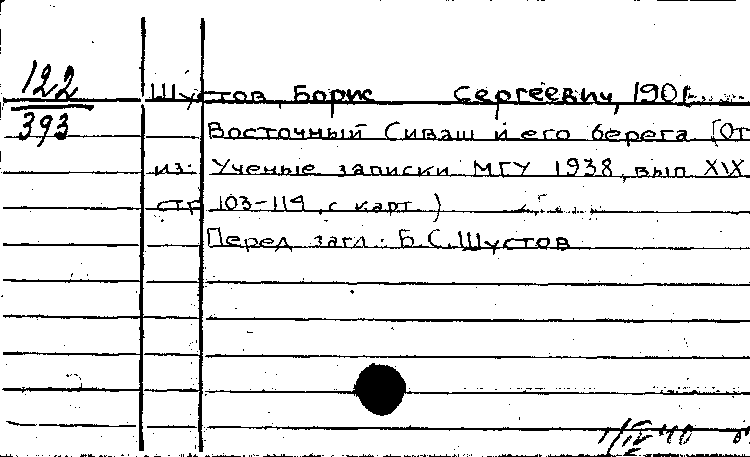 122
393
Шустов, Борис Сергеевич, 1901-
Восточный Сиваш и его берега [От
из: Ученые записки МГУ 1938, вып XIX
стр 103-114, с карт.)
Перед загл.: Б.С. Шустов
1/IV 40